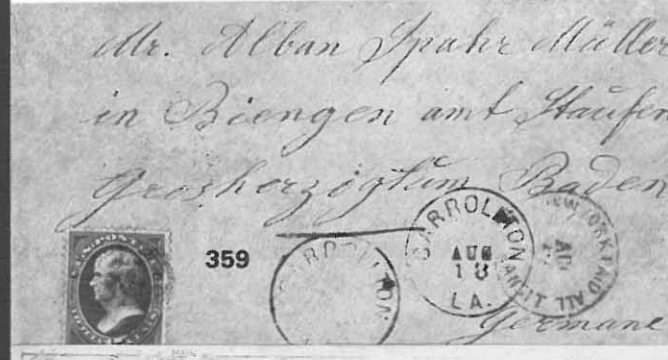 Mr. Alban Spahr Müller
in Biengen amt Staufen
Grosherzigtum Baden
359
CARROLLTON
CARROLLTON
AUG
18
LA.
NEW YORK PAID ALL
TRANSIT
AU
Germane